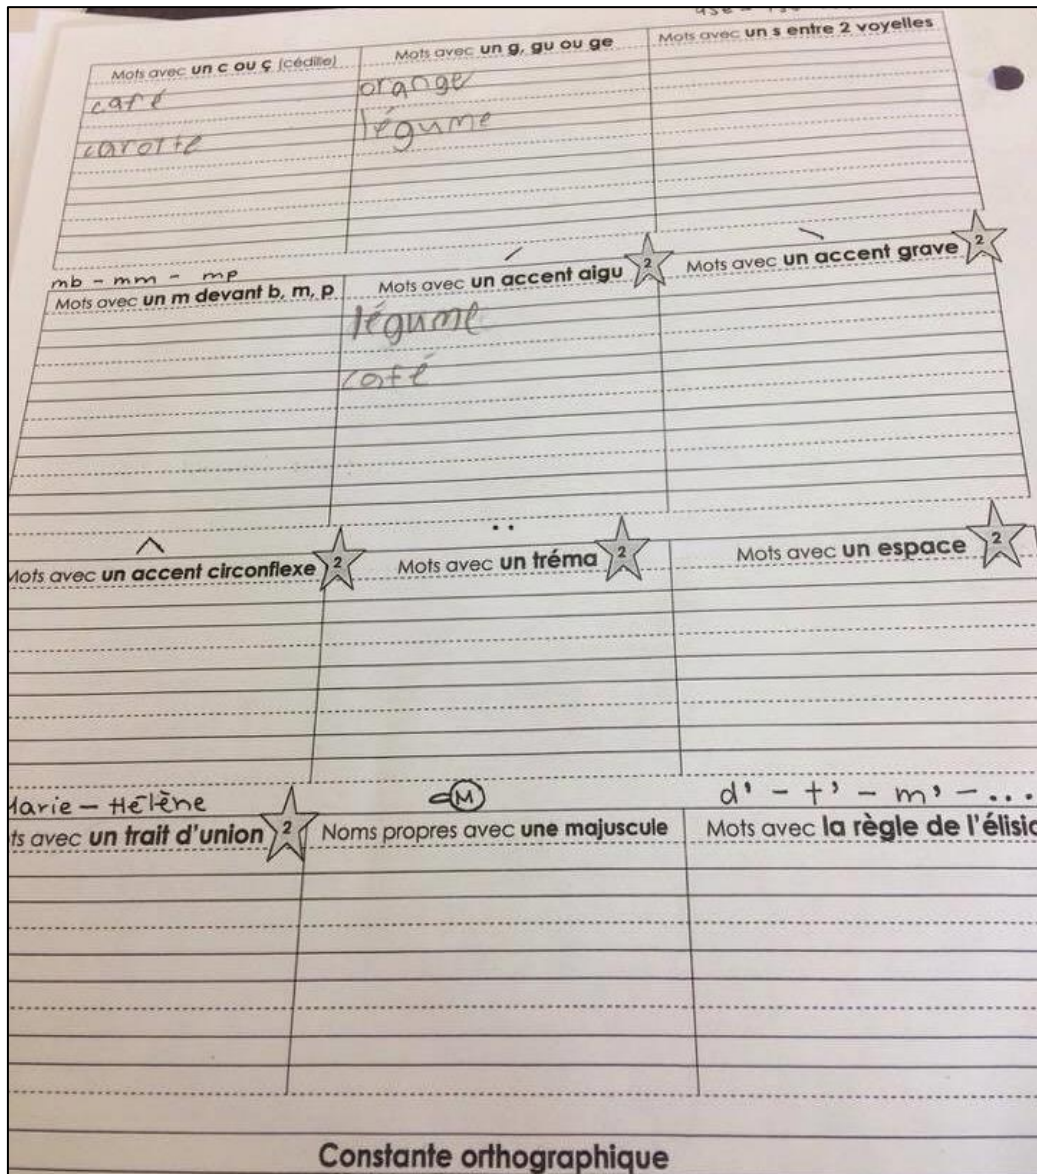 Mots avec un c ou ç (cédille)
Mots avec un g, gu ou ge
Mots avec un s entre 2 voyelles
café
orange
carotte
légume
mb - mm - mp
Mots avec un m devant b, m, p
Mots avec un accent aigu 2
Mots avec un accent grave 2
légume
café
Mots avec un accent circonflexe 2
Mots avec un tréma 2
Mots avec un espace 2
Marie - Hélène
M
d' - t' - m' - ...
ts avec un trait d'union 2
Noms propres avec une majuscule
Mots avec la règle de l'élisio
Constante orthographique